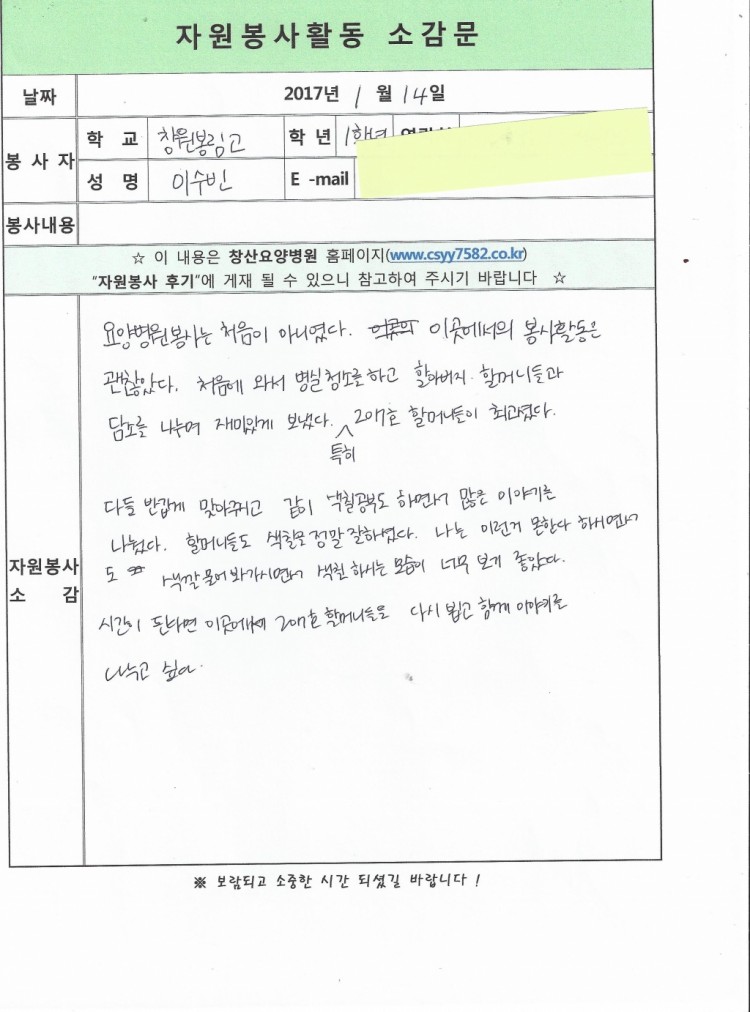 자원봉사활동 소감문
날짜 2017년 1 월 14일
봉사자 학 교 창원봉림고 학 년 1학년
성 명 이수빈 E -mail
봉사내용
☆ 이 내용은 창산요양병원 홈페이지(www.csyy7582.co.kr)
"자원봉사 후기"에 게재 될 수 있으니 참고하여 주시기 바랍니다 ☆
자원봉사
소 감
요양병원봉사는 처음이 아니였다. 이곳에서의 봉사활동은
괜찮았다. 처음에 와서 병실청소를하고 할아버지. 할머니들과
담소를 나누며 재미있게 보냈다. 특히 207호 할머니들이 최고였다.
다들 반갑게 맞아주시고 같이 색칠공부도 하면서 많은 이야기를
나눴다. 할머니들도 색칠을 정말 잘하셨다. 나는 이런거 못한다 하시면서
도 색깔 물어봐가시면서 색칠 하시는 모습이 너무 보기 좋았다.
시간이 된다면 이곳에서 207호 할머니들을 다시 뵙고 함께 이야기를
나누고 싶다.
※ 보람되고 소중한 시간 되셨길 바랍니다 !